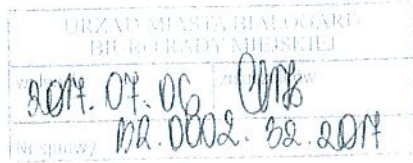 URZĄD MIASTA BIAŁOGARD
BIURO RADY MIEJSKIEJ
2017. 07. 06
Nr sprawy BR.0002. 32. 2017